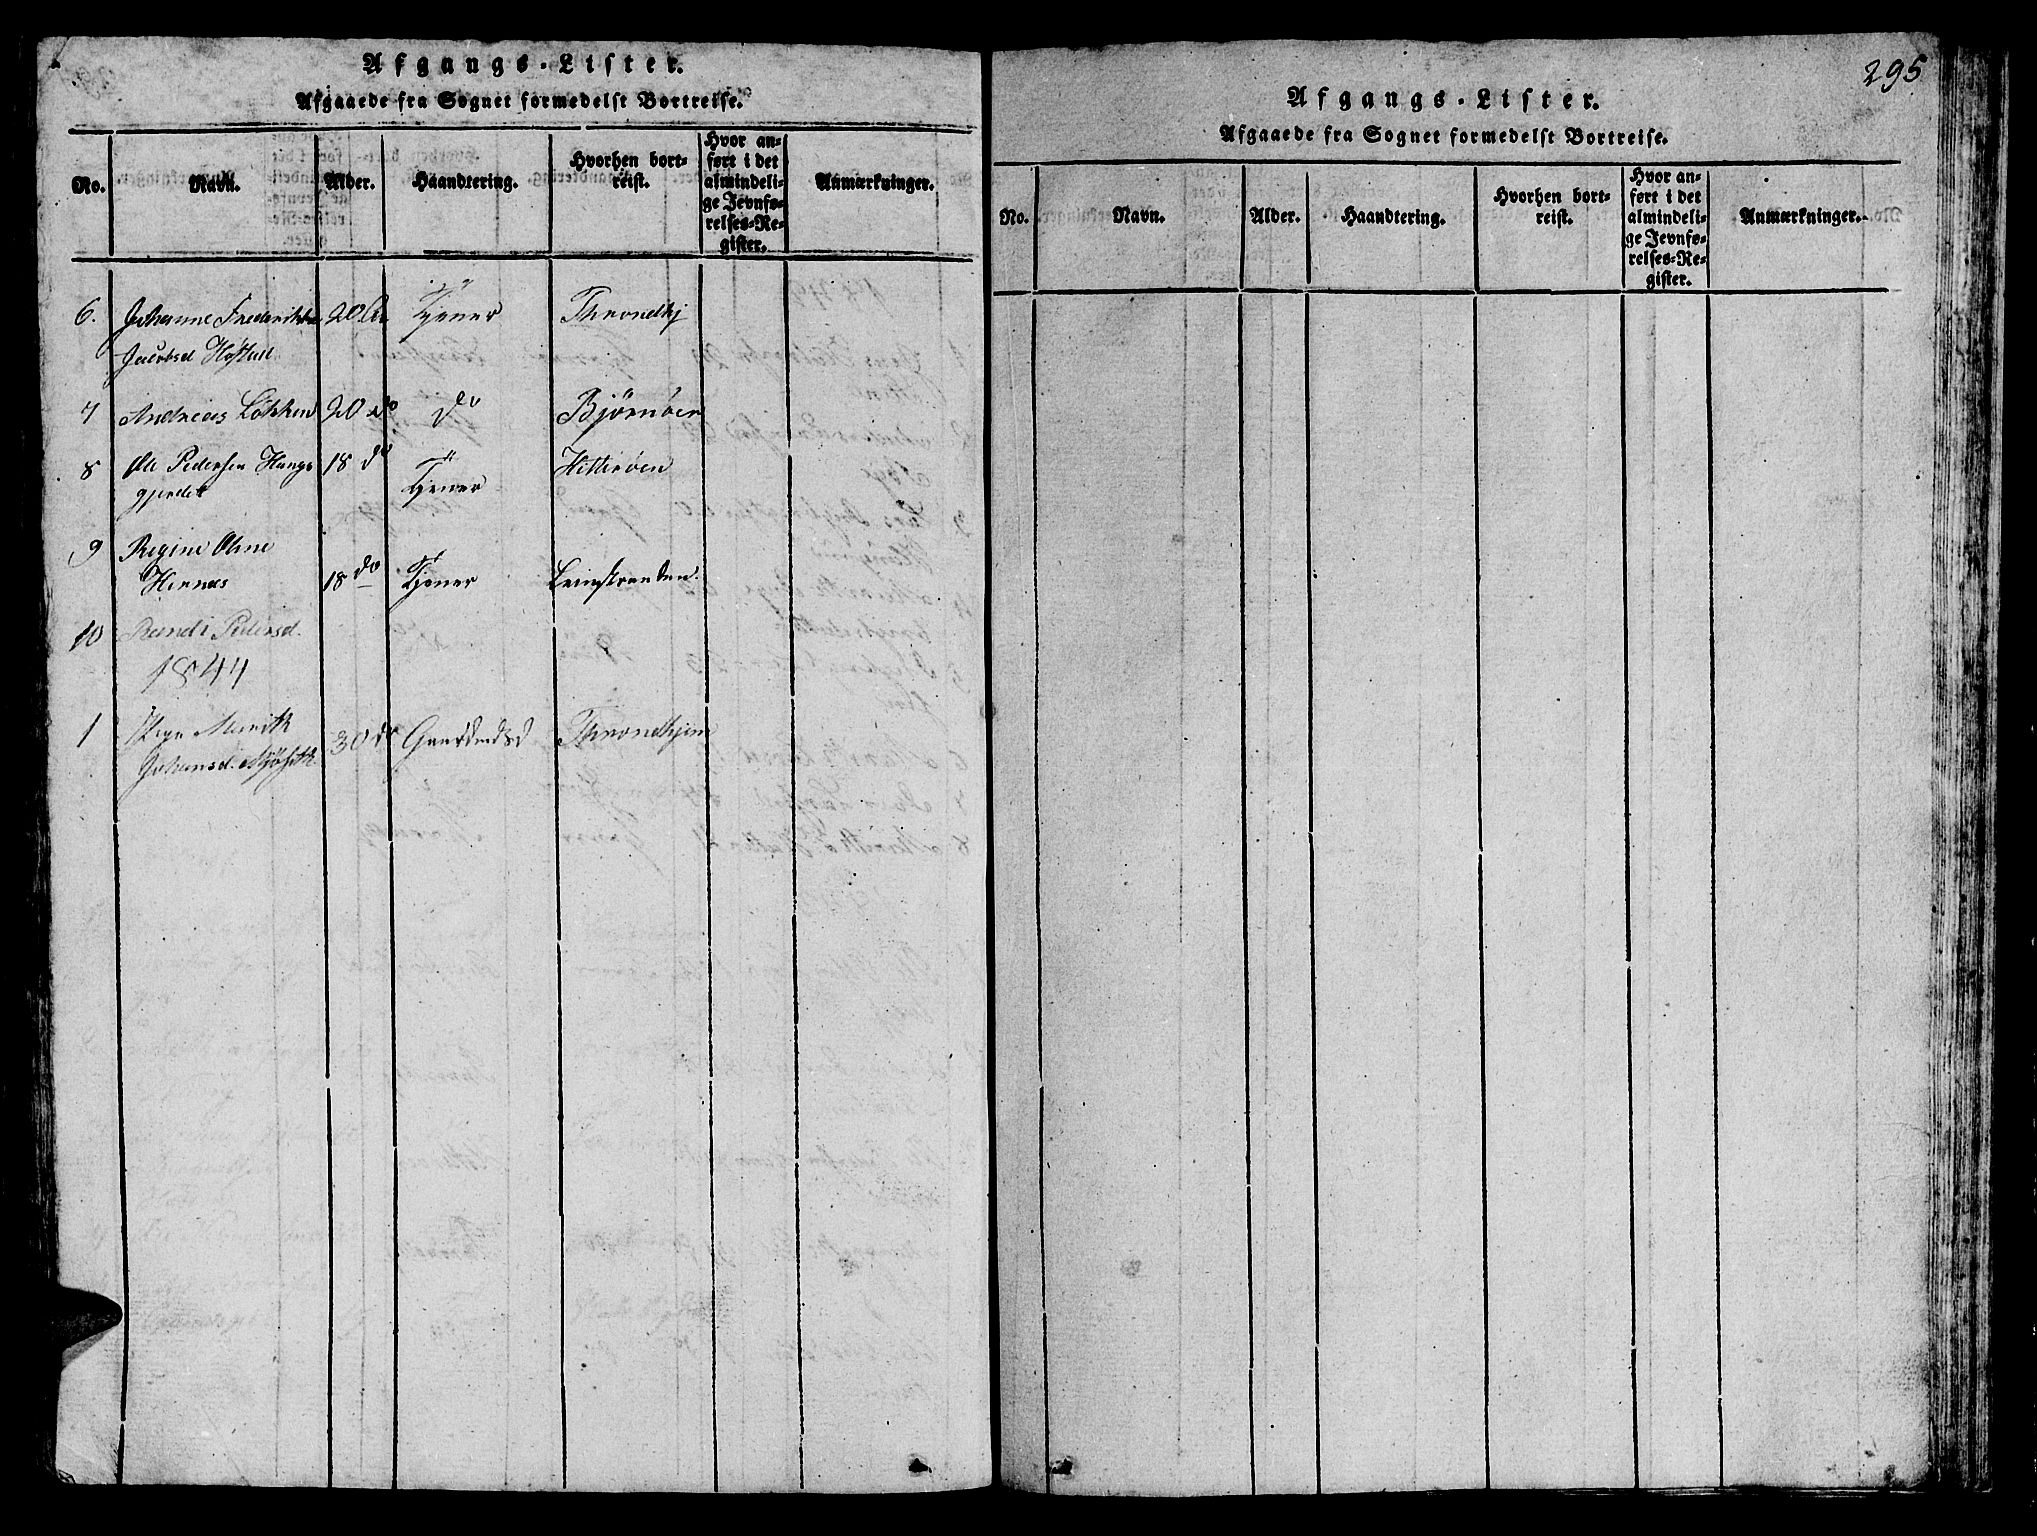 Afgangs-Lister.
Afgaaede fra Sognet formedelst Bortreise.
No. Navn. Alder. Haandtering. Hvorhen bort-reist. Hvor an-ført i det almindeli-ge Jevnfø-relses-Re-gister. Anmærkninger.
6. Johanne Frederikke 20 Aar Tjener Throndhj
Jacobsd Høstad
7 Andreas Løkken 20 do do Bjørnøer
8 Ole Pedersen Haugs 18 do Tjener Hitterøen
gjerdet
9 Regine Olsne
Hernæs 18 do Tjener Leinstranden
10 Randi Pedersd.
1844
1 Marith 30 do Gaardmdsd Throndhjem
Johansd.
295
Afgangs-Lister.
Afgaaede fra Sognet formedelst Bortreise.
No. Navn. Alder. Haandtering. Hvorhen bort-reist. Hvor an-ført i det almindeli-ge Jevnfø-relses-Re-gister. Anmærkninger.